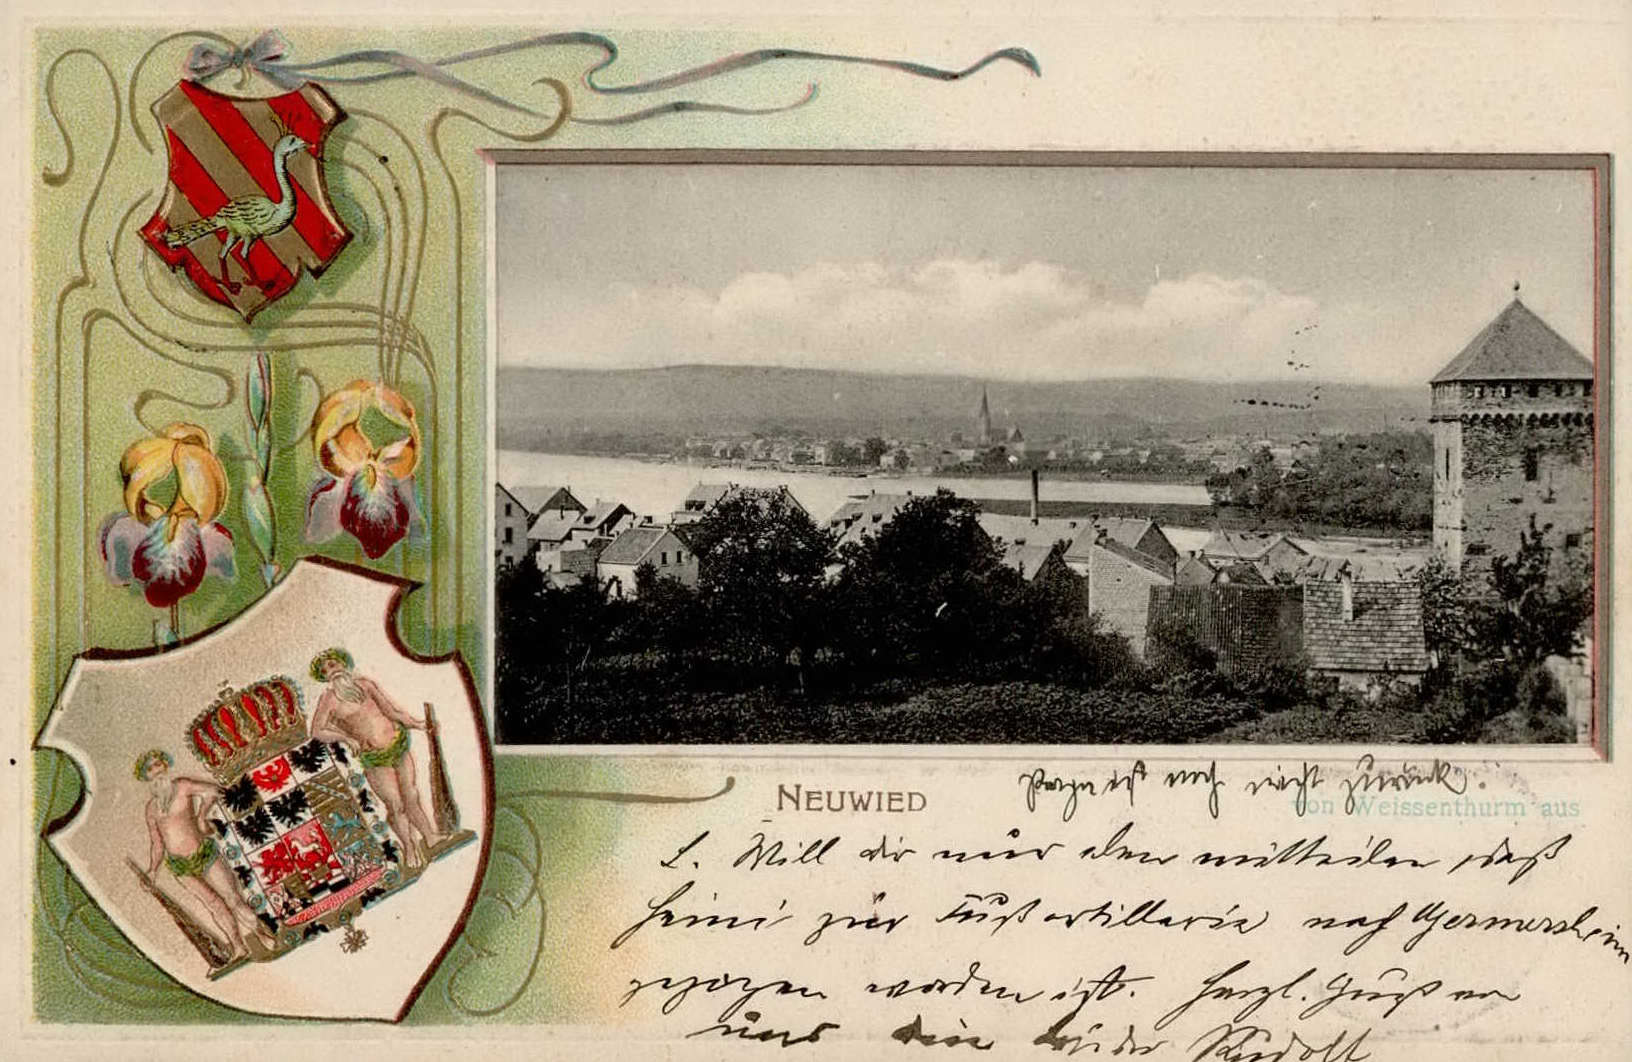 NEUWIED
von Weissenthurm aus
Papa ist noch nicht zurück.
L. Will dir nur eben mitteilen, daß
Heini zur Fußartillerie nach Germersheim
gezogen worden ist. Herzl. Gruß von
uns dein Bruder Rudolf